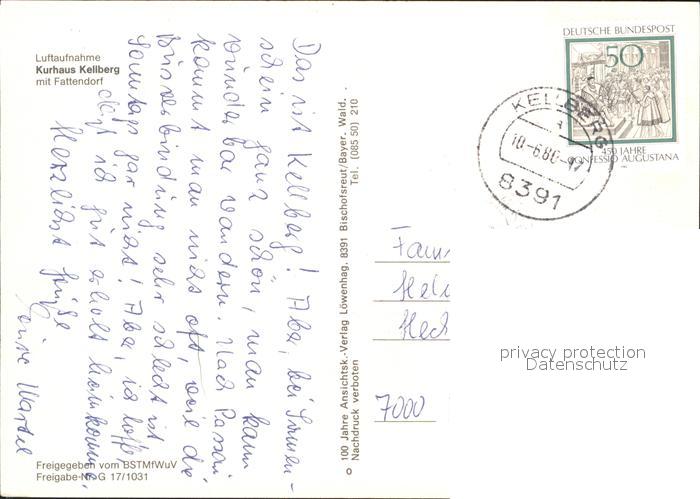 Luftaufnahme
Kurhaus Kellberg
mit Fattendorf
Das ist Kellberg! Aber, bei Sonnen-
schein ganz schön, man kann
wunderbar wandern. Nach Passau
kommt man nicht oft, weil die
Busverbindung sehr schlecht ist
Samstags gar nicht! Aber, ich hoffe,
daß ich gut erholt heimkomme.
Herzlichst Grüße
Eure
Freigegeben vom BSTMfWuV
Freigabe-Nr. G 17/1031
100 Jahre Ansichtsk.-Verlag Löwenhag, 8391 Bischofsreut/Bayer. Wald.
Tel. (085 50) 210
Nachdruck verboten
DEUTSCHE BUNDESPOST
50
450 JAHRE
CONFESSIO AUGUSTANA
KELLBERG
a
10.-6.80.-17
8391
Fam
7000
privacy protection
Datenschutz